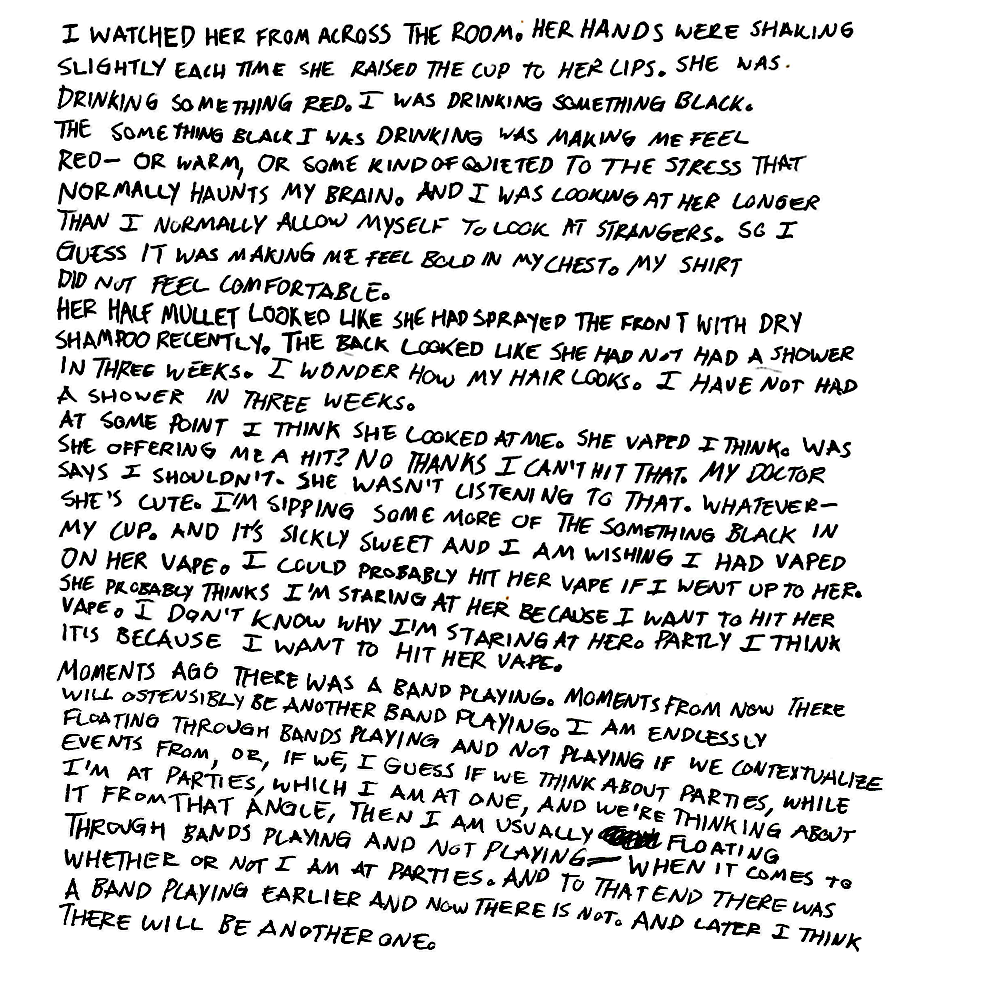 I WATCHED HER FROM ACROSS THE ROOM. HER HANDS WERE SHAKING
SLIGHTLY EACH TIME SHE RAISED THE CUP TO HER LIPS. SHE WAS
DRINKING SOMETHING RED. I WAS DRINKING SOMETHING BLACK.
THE SOMETHING BLACK I WAS DRINKING WAS MAKING ME FEEL
RED— OR WARM, OR SOME KIND OF QUIETED TO THE STRESS THAT
NORMALLY HAUNTS MY BRAIN. AND I WAS LOOKING AT HER LONGER
THAN I NORMALLY ALLOW MYSELF TO LOOK AT STRANGERS. SO I
GUESS IT WAS MAKING ME FEEL BOLD IN MY CHEST. MY SHIRT
DID NOT FEEL COMFORTABLE.
HER HALF MULLET LOOKED LIKE SHE HAD SPRAYED THE FRONT WITH DRY
SHAMPOO RECENTLY. THE BACK LOOKED LIKE SHE HAD NOT HAD A SHOWER
IN THREE WEEKS. I WONDER HOW MY HAIR LOOKS. I HAVE NOT HAD
A SHOWER IN THREE WEEKS.
AT SOME POINT I THINK SHE LOOKED AT ME. SHE VAPED I THINK. WAS
SHE OFFERING ME A HIT? NO THANKS I CAN'T HIT THAT. MY DOCTOR
SAYS I SHOULDN'T. SHE WASN'T LISTENING TO THAT. WHATEVER—
SHE'S CUTE. I'M SIPPING SOME MORE OF THE SOMETHING BLACK IN
MY CUP. AND IT'S SICKLY SWEET AND I AM WISHING I HAD VAPED
ON HER VAPE. I COULD PROBABLY HIT HER VAPE IF I WENT UP TO HER.
SHE PROBABLY THINKS I'M STARING AT HER BECAUSE I WANT TO HIT HER
VAPE. I DON'T KNOW WHY I'M STARING AT HER. PARTLY I THINK
IT'S BECAUSE I WANT TO HIT HER VAPE.
MOMENTS AGO THERE WAS A BAND PLAYING. MOMENTS FROM NOW THERE
WILL OSTENSIBLY BE ANOTHER BAND PLAYING. I AM ENDLESSLY
FLOATING THROUGH BANDS PLAYING AND NOT PLAYING IF WE CONTEXTUALIZE
EVENTS FROM, OR, IF WE, I GUESS IF WE THINK ABOUT PARTIES, WHILE
I'M AT PARTIES, WHICH I AM AT ONE, AND WE'RE THINKING ABOUT
IT FROM THAT ANGLE, THEN I AM USUALLY FLOATING
THROUGH BANDS PLAYING AND NOT PLAYING— WHEN IT COMES TO
WHETHER OR NOT I AM AT PARTIES. AND TO THAT END THERE WAS
A BAND PLAYING EARLIER AND NOW THERE IS NOT. AND LATER I THINK
THERE WILL BE ANOTHER ONE.